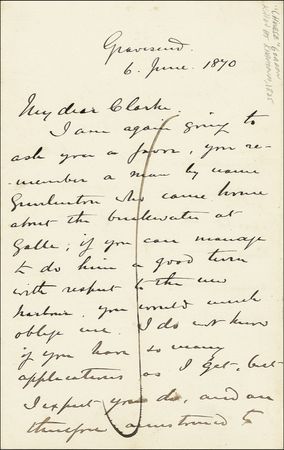 "CHINESE" GORDON
KILLED AT KHARTOUM, 1885
Gravesend.
6. June. 1870
My dear Clarke.
I am again going to
ask you a favor, you re-
-member a man by name
who came home
about the breakwater at
Galle; if you can manage
to do him a good turn
with respect to the new
harbour, you would much
oblige me. I do not know
if you have so many
applications as I get, but
I expect you do, and are
therefore accustomed to